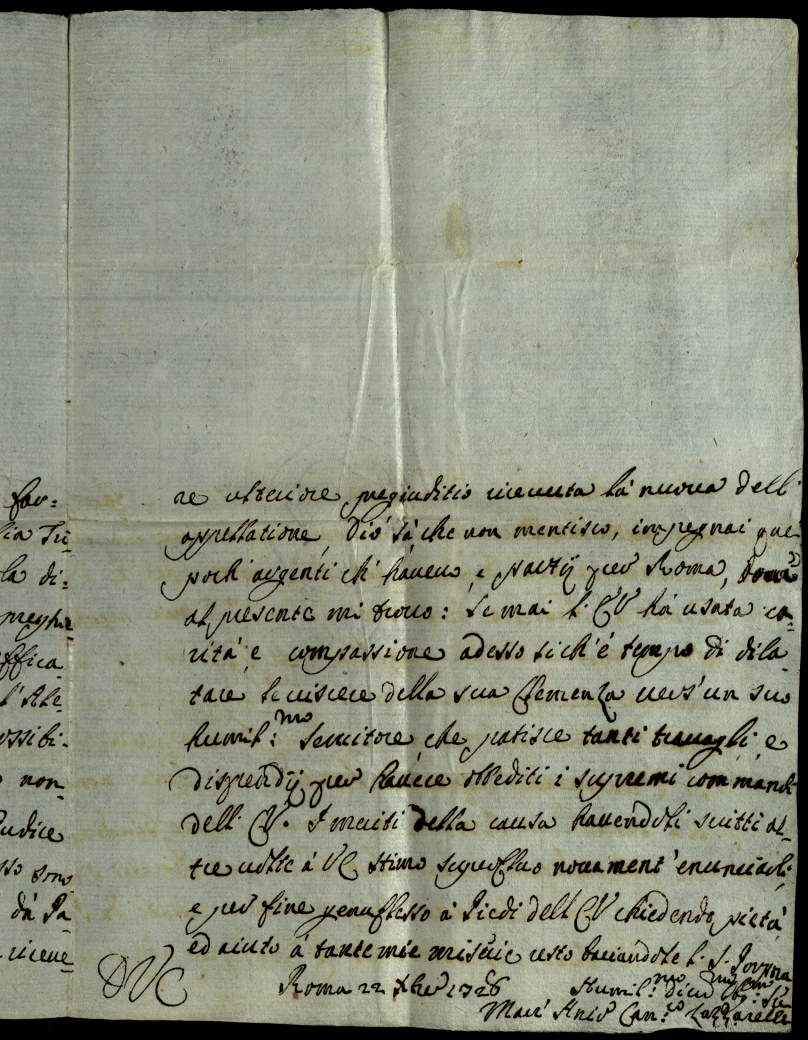 far=
lia Tu-
la di=
preghi=
effica
l'Ale=
ossibi-
non
iudice
sso sono
da Pa
riceve
re ulteriore pregiuditio ricevuta la nuova dell'
appellatione, Dio sà che non mentisco, impegnai que
pochi argenti ch'havevo, e partij per Roma, dove
al presente mi trovo: Se mai l'EV hà usata ca-
rità e compassione adesso sich'è tempo di dila
tare le viscere della sua Clemenza vers'un suo
humil:mo Servitore che patisce tanti travagli e
dispendij per havere obbediti i supremi commandi
dell'EV. I meriti della causa havendoli scritti al-
tre volte à VE stimo superfluo novament'enunciarli,
e per fine genuflesso à Piedi dell'EV chiedendo pietà
ed aiuto à tante mie miserie resto baciandole l. S. Porpora
DVE
Roma 22 Xbre 1726
Humil:mo div:mo obb:mo Se
Can:co Lazzarelli